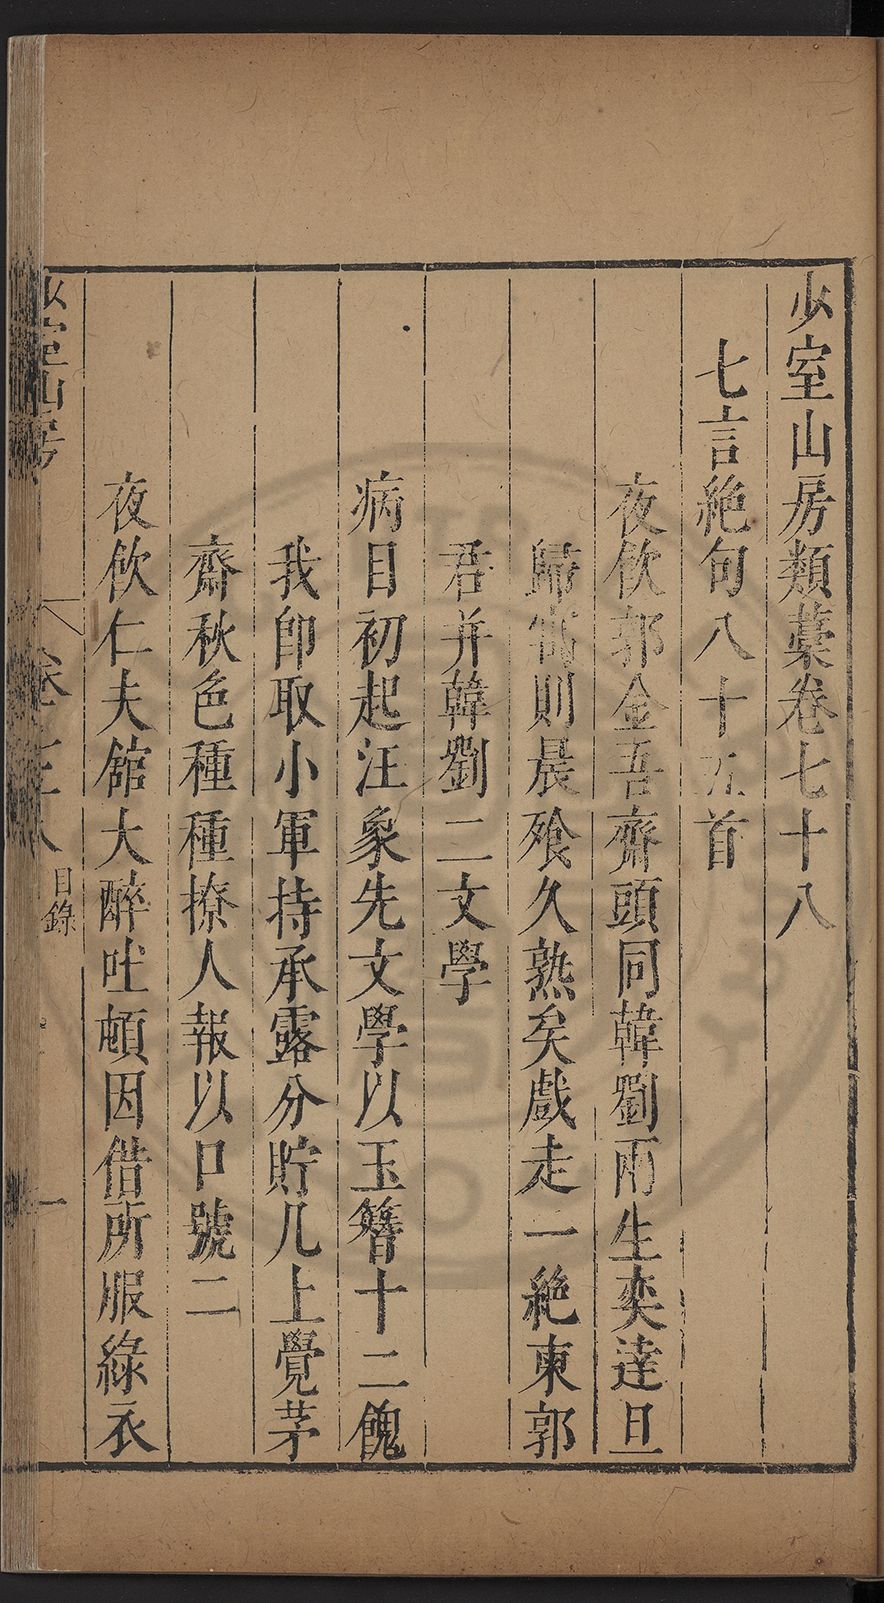 少室山房類藁卷七十八
七言絶句八十五首
夜飲郭金吾齋頭同韓劉兩生奕達旦
歸寓則晨飱久熟矣戲走一絶柬郭
君并韓劉二文學
病目初起汪象先文學以玉簪十二餽
我卽取小軍持承露分貯几上覺茅
齋秋色種種撩人報以口號二
夜飲仁夫舘大醉吐頓因借所服綠衣
少室山房
卷七十八
目錄
一